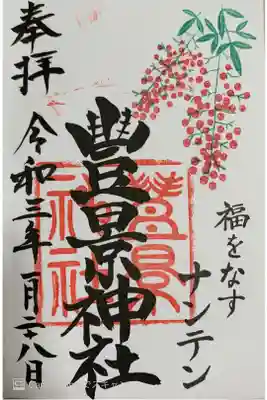 福をなす
ナンテン
豊景神社
奉拝
令和三年一月二八日
豊景
神社